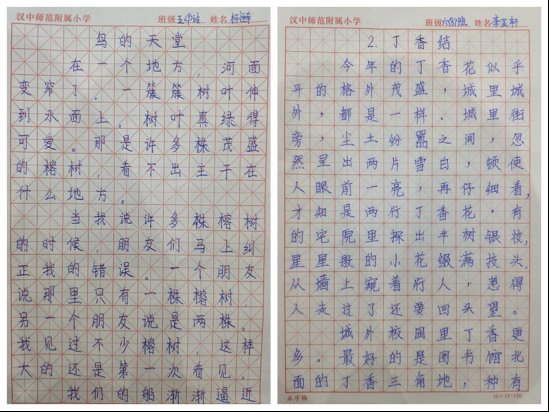 汉中师范附属小学
鸟的天堂
在一个地方 河面
变窄了。一簇簇树叶伸
到水面上。树叶真绿得
可爱。那是许多株茂盛
的榕树,看不出主干在
什么地方。
当我说许多株榕树
的时候,朋友们马上纠
正我的错误。一个朋友
说那里只有一株榕树
另一个朋友说是两株。
我见过不少榕树 这样
大的还是第一次看见,
我们的船渐渐逼近
汉中师范附属小学
班级 姓名
2.丁香结
今年的丁香花似乎
开的格外茂盛,城里城
外,都是一样。城里街
旁,尘土纷嚣之间,忽
然里出两片雪白,顿使
人眼前一亮,再仔细看,
才知是两行丁香花。有
的宅院里探出半树银妆,
星星般的小花缀满枝头,
从墙上窥着行人,惹得
人走过了还要回头望。
城外校园里丁香更
多。最好的是图书馆北
面的丁香三角地,种有
米字格